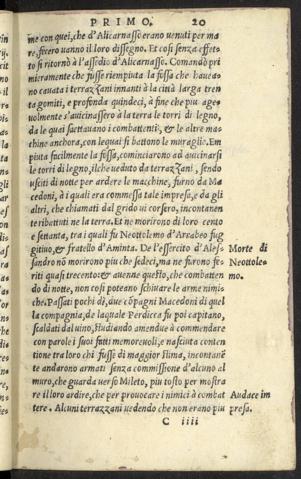 PRIMO. 20
me con quei, che d'Alicarnasso erano uenuti per ma
re, fecero uanno il loro dissegno. Et cosi senza effet
to si ritornò à l'assedio d'Alicarnasso. Comandò pri
mieramente che fusse riempiuta la fossa che haueа
no cauata i terrazzani innanti à la città larga tren
ta gomiti, e profonda quindeci, à fine che piu age
uolmente s'auicinassero à la terra le torri di legno,
da le quai saettauano i combattenti, & le altre mac
chine anchora, con lequai si battono le muraglie. Em
piuta facilmente la fossa, cominciarono ad auicinarsi
le torri di legno, ilche ueduto da terrazzani, sendo
usciti di notte per ardere le macchine, furno da Ma
cedoni, à i quali era commessa tale impresa, e da gli
altri, che chiamati dal grido ui corsero, incontanen
te ributtati ne la terra. Et ne morirono di loro cento
e settanta, tra i quali fu Neottolemo d'Arrabeo fug
gitiuo, & fratello d'Aminta. De l'essercito d'Ales
sandro nō morirono piu che sedeci, ma ne furono fe
riti quasi trecento: & auenne questo, che combatten
do di notte, non cosi poteano schiuare le arme nimi
che. Passati pochi dì, due cōpagni Macedoni di quel
la compagnia, de laquale Perdicca fu poi capitano,
scaldati dal uino, studiando amendue à commendare
con parole i suoi fatti memoreuoli, e nasciuta conten
tione tra loro chi fusse di maggior stima, incontanē
te andarono armati senza commissione d'alcuno al
muro, che guarda uerso Mileto, piu tosto per mostra
re il loro ardire, che per prouocare i nimici à combat
tere. Alcuni terrazzani uedendo che non erano piu
C iiii
Morte di
Neottole
mo.
Audace im
presa.